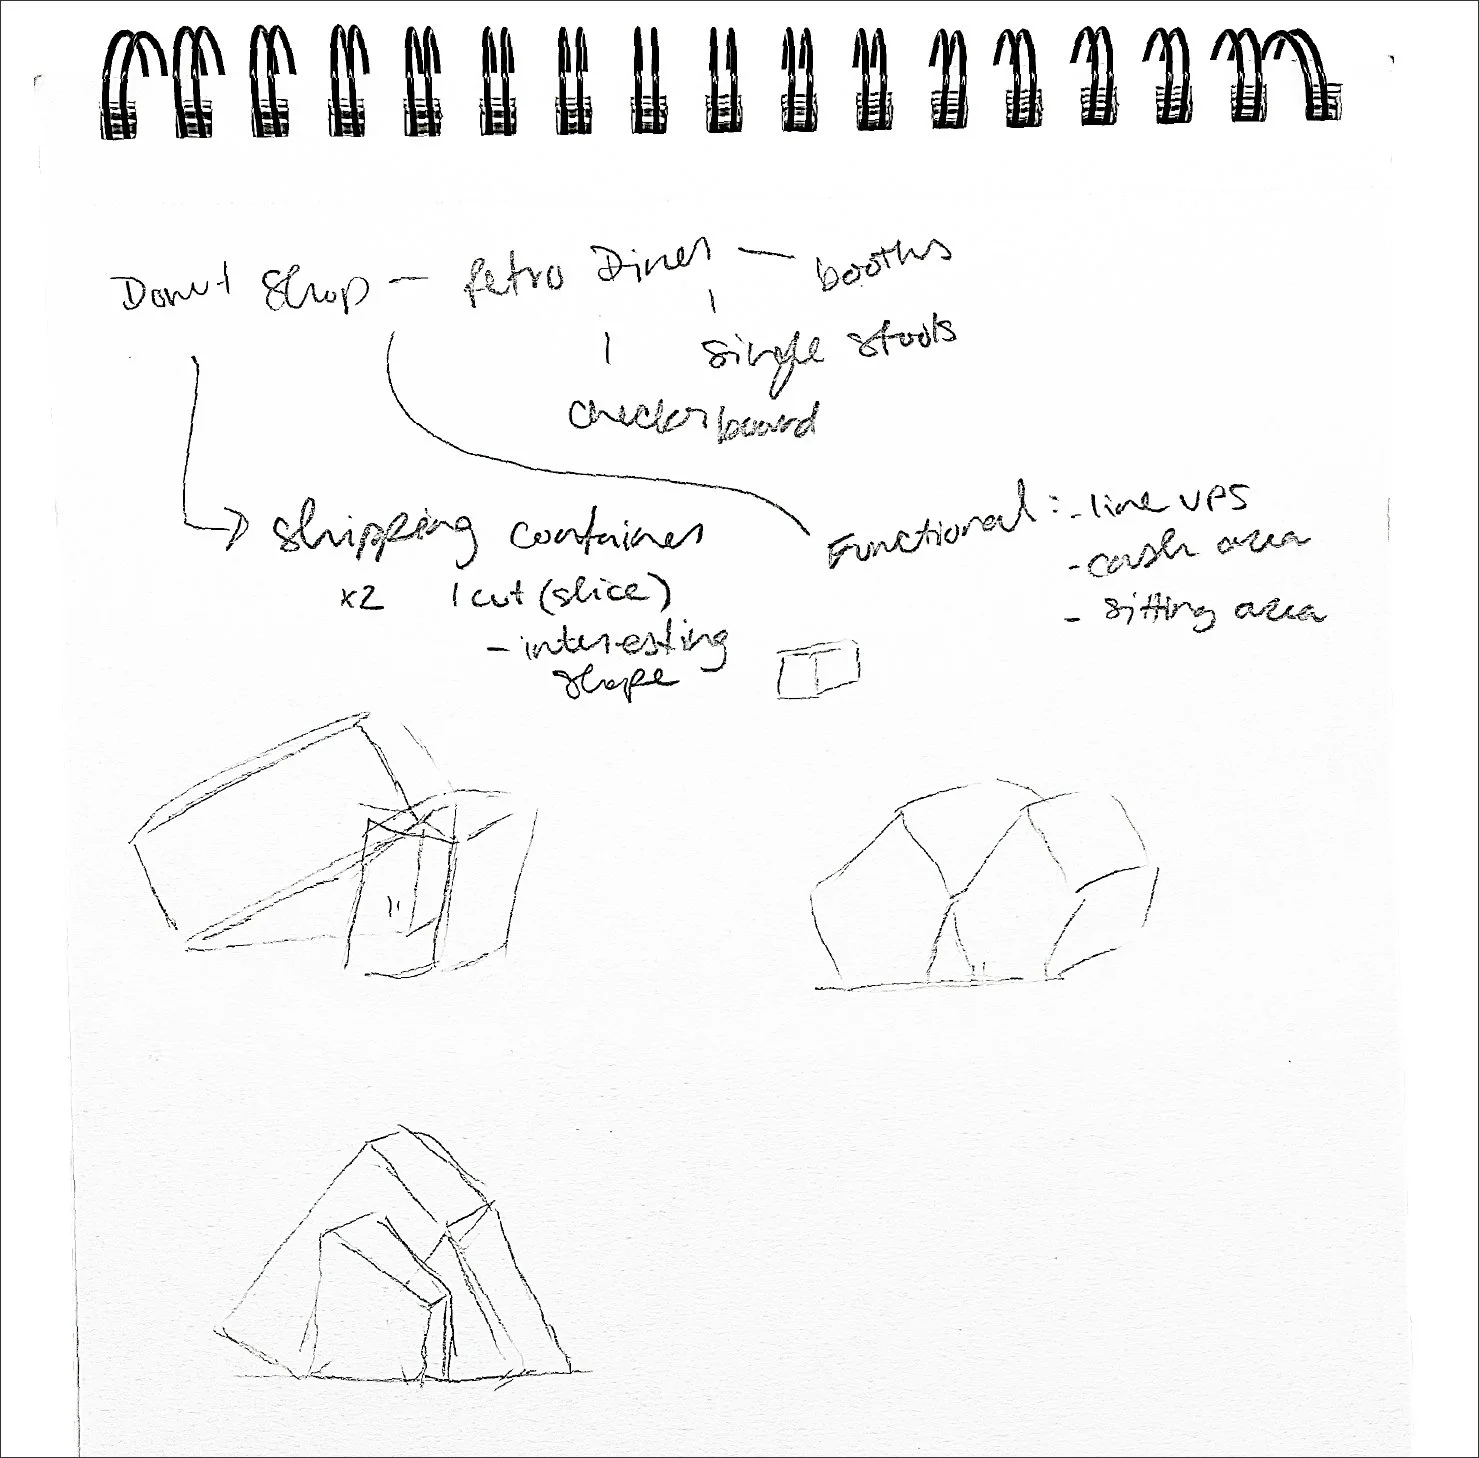 Donut Shop — Retro Diner — booths
single stools
checkerboard
shipping container
x2 1 cut (slice)
- interesting
shape
Functional: - line ups
- cash area
- sitting area